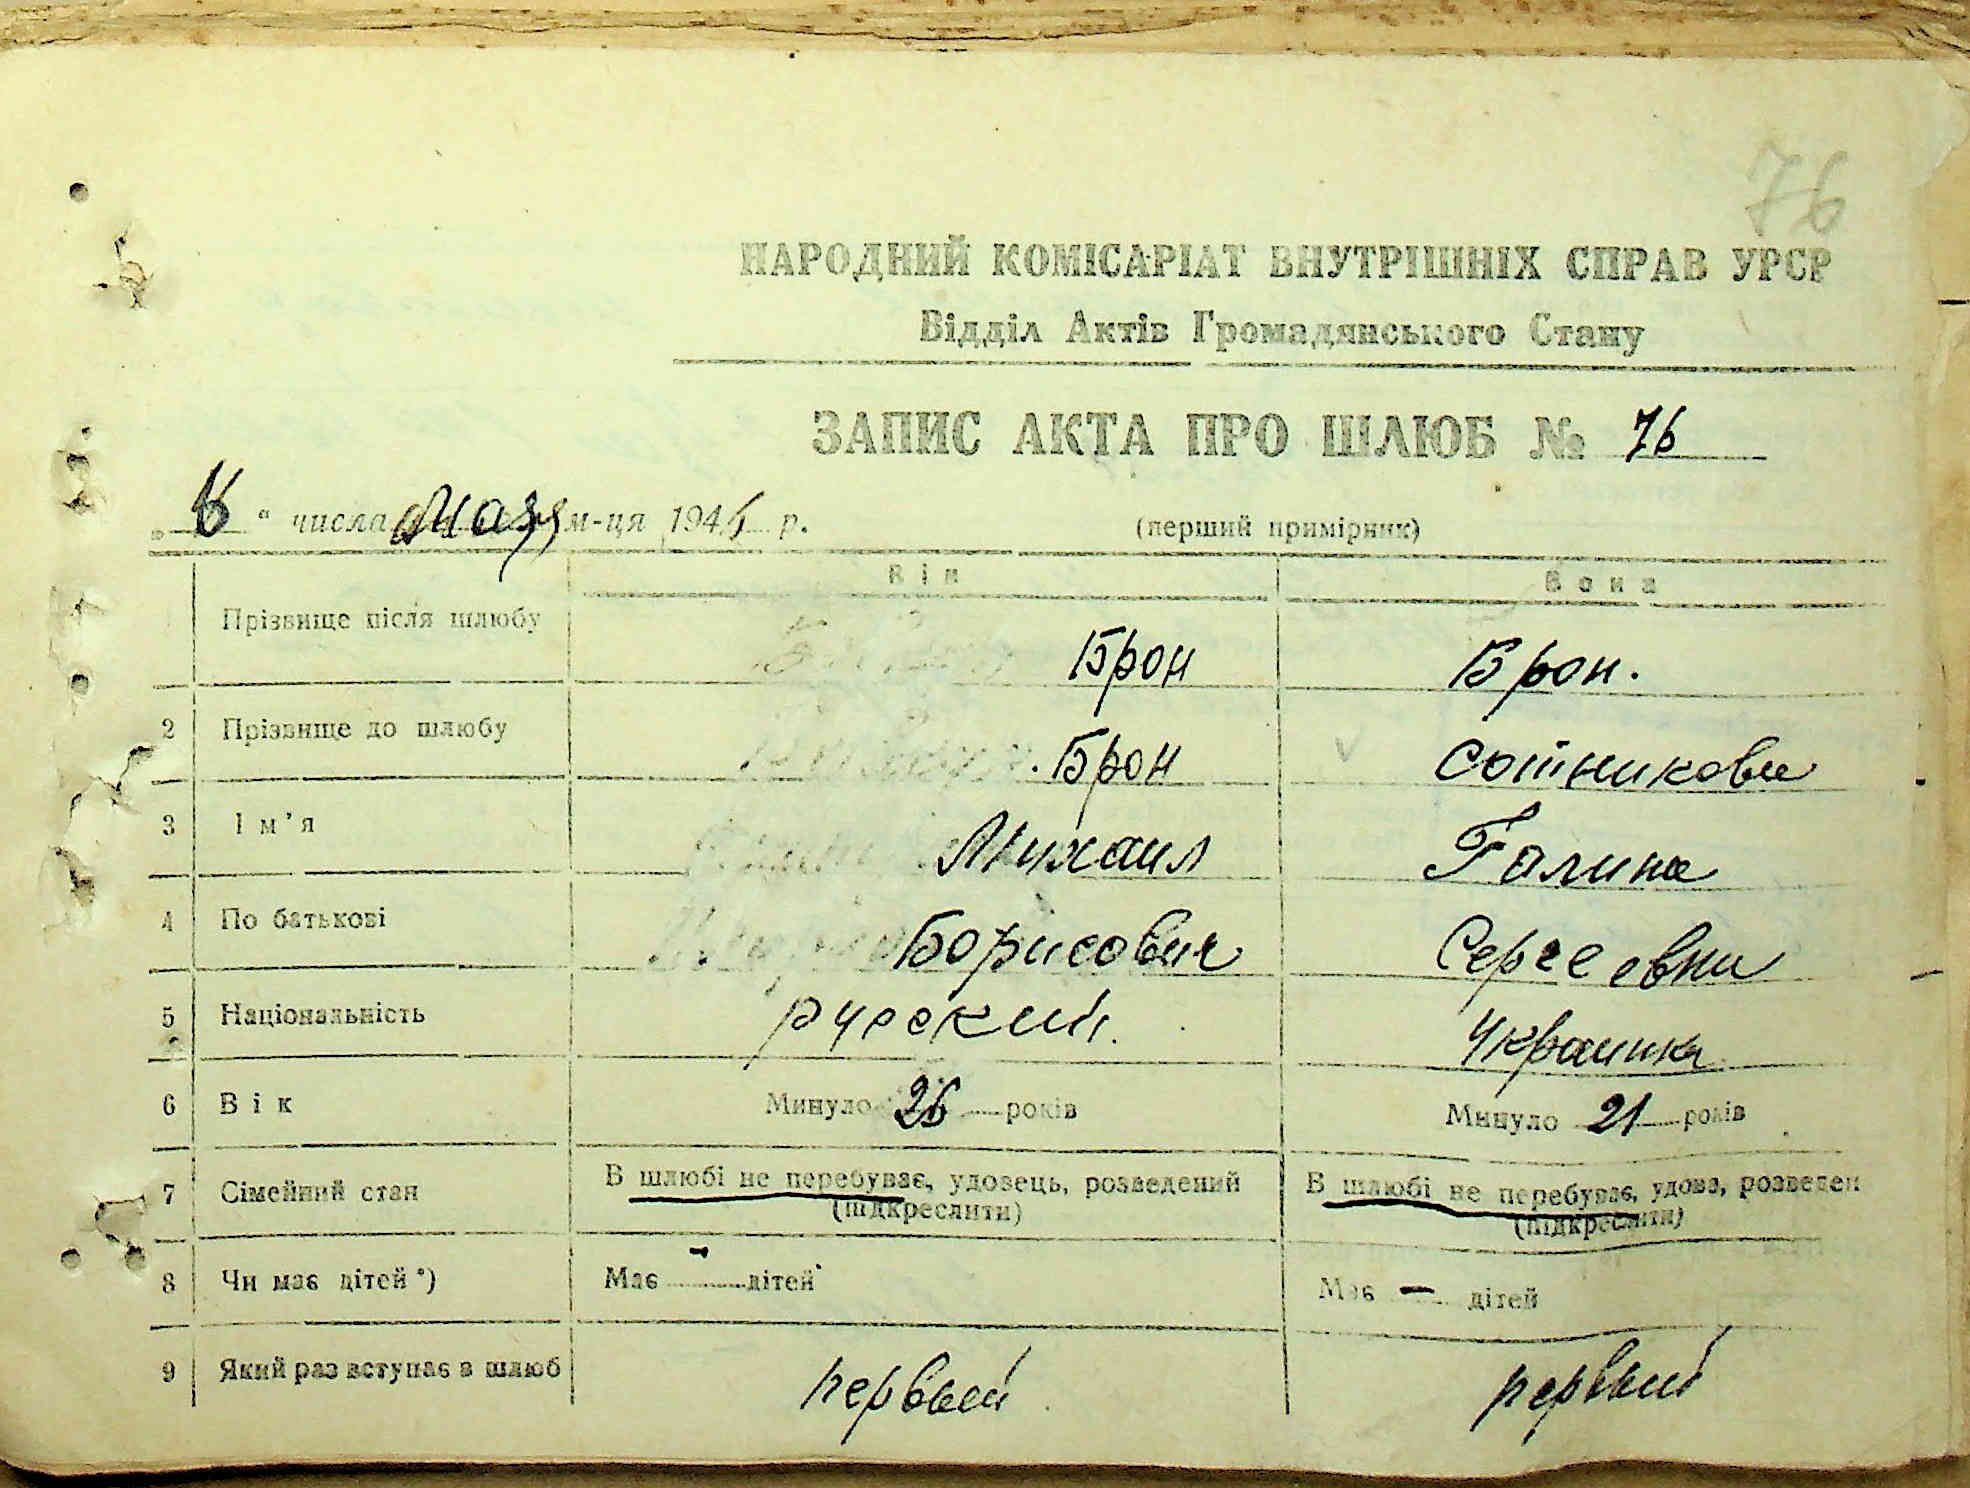 76
НАРОДНИЙ КОМІСАРІАТ ВНУТРІШНІХ СПРАВ УРСР
Відділ Актів Громадянського Стану
ЗАПИС АКТА ПРО ШЛЮБ № 76
" 6 " числа мая м-ця 1945 р. (перший примірник)
Він Вона
Прізвище після шлюбу Брон Брон.
2 Прізвище до шлюбу Брон Сотникова
3 Ім'я Михаил Галина
4 По батькові Борисович Сергеевна
5 Національність русский. Украинка
6 Вік Минуло 26 років Минуло 21 років
7 Сімейний стан В шлюбі не перебуває, удовець, розведений В шлюбі не перебуває, удова, розведен
(підкреслити) (підкреслити)
8 Чи має дітей*) Має - дітей Має - дітей
9 Який раз вступає в шлюб первый первый